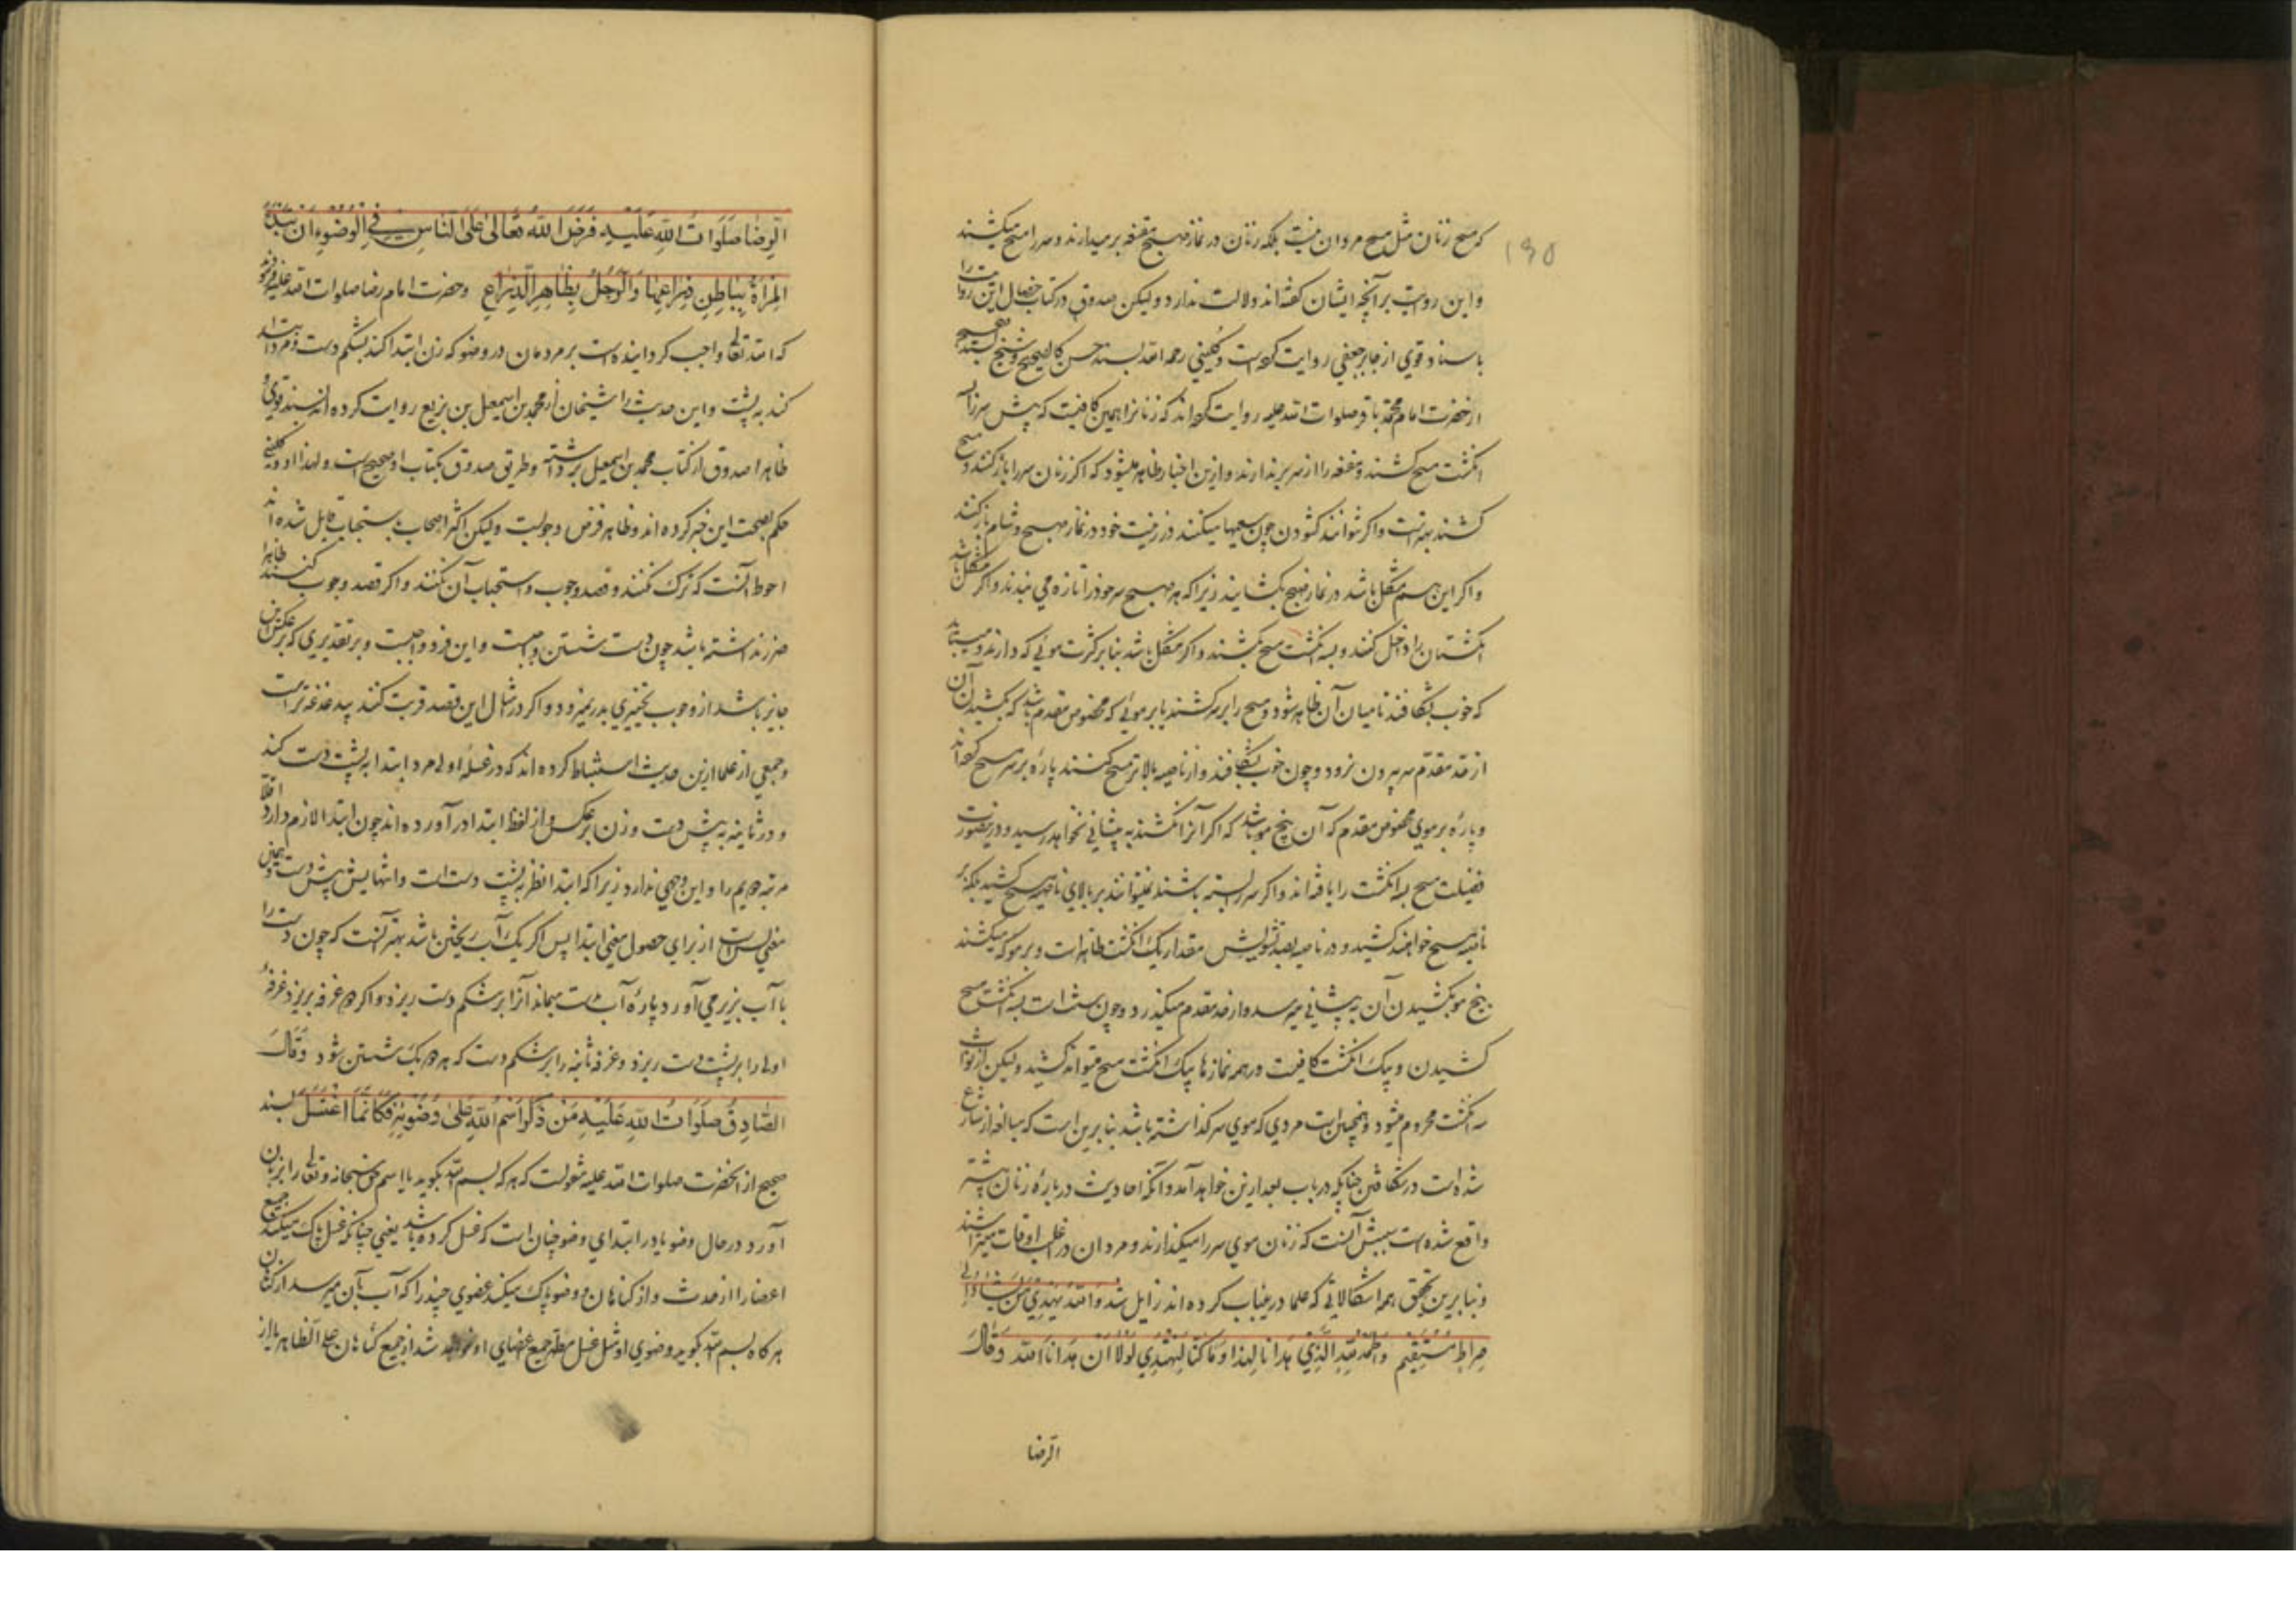 که مسح زنان مثل مسح مردان نیست بلکه زنان در نماز صبح مقنعه برمیدارند و سر را مسح میکشند
۱۹۵
و این روایت بر آنچه ایشان گفته اند دلالت ندارد و لیکن صدوق در کتاب خصال این روایت را
باسناد قوی از جابر جعفی روایت کرده است و کلینی رحمه الله بسند حسن کالصحیح و شیخ بسند صحیح
از حضرت امام محمد باقر صلوات الله علیه روایت کرده اند که زنانرا همین کافیست که پیش سر را بسه
انگشت مسح کشند و مقنعه را از سر برندارند و ازین اخبار ظاهر میشود که اگر زنان سر را باز کنند و مسح
کشند بهتر است و اگر نتوانند گشودن چون سعیها میکنند در زینت خود در نماز صبح و شام باز کنند
و اگر این هم مشکل باشد در نماز صبح بگشایند زیرا که هر صبح سر خود را تازه می بندند و اگر مشکل باشد
انگشتان را داخل کنند و بسه انگشت مسح بکشند و اگر مشکل باشد بنا بر کثرت موئی که دارند میباید
که خوب بشکافند تا میان آن ظاهر شود و مسح را بر سر کشند یا بر موئی که مخصوص مقدم باشد که بکشیدن آن
از حد مقدم سر بیرون نرود و چون خوب بشکافند و از ناصیه بالاتر مسح کنند پاره بر سر مسح کرده اند
و پاره بر موی مخصوص مقدم که آن بیخ مو باشد که اگر آنرا کشند به پیشانی نخواهد رسید و درینصورت
فضیلت مسح بسه انگشت را یافته اند و اگر سر بسته باشند نمیتوانند بر بالای ناصیه مسح کشید بلکه بر
ناصیه مسح خواهند کشید و در ناصیه بصد تشویش مقدار یک انگشت ظاهر است و بر مو که میکشند
بیخ مو بکشیدن آن به پیشانی میرسد و از حد مقدم میگذرد و چون سنت است بسه انگشت مسح
کشیدن و بیک انگشت کافیست در همه نمازها بیک انگشت مسح میتواند کشید و لیکن از ثواب
سه انگشت محروم میشود و همچنین است مردی که موی سر گذاشته باشد بنا برین است که مبالغه از شارع
شده است در شکافتن چنانکه در باب بعد ازین خواهد آمد و آنکه احادیث درباره زنان بیشتر
واقع شده است سببش آنست که زنان موی سر را میگذارند و مردان در اغلب اوقات میتراشند
و بنا برین تحقیق همه اشکالاتی که علما درینباب کرده اند زایل شد و الله یهدی من یشاء الی
صراط مستقیم و الحمد لله الذی هدانا لهذا و ما کنا لنهتدی لولا ان هدانا الله و قال
الرضا
الرضا صلوات الله علیه فرض الله تعالی علی الناس فی الوضوء ان تبدء
المرأة بباطن ذراعیها و الرجل بظاهر الذراع و حضرت امام رضا صلوات الله علیه فرمود
که الله تعالی واجب گردانیده است بر مردمان در وضو که زن ابتدا کند بشکم دست و مرد ابتدا
کند به پشت و این حدیث را شیخان از محمد بن اسمعیل بن بزیع روایت کرده اند بسند قوی و
ظاهرا صدوق از کتاب محمد بن اسمعیل برداشته و طریق صدوق بکتاب او صحیح است و لهذا او و کلینی
حکم بصحت این خبر کرده اند و ظاهر فرض وجوبست و لیکن اکثر اصحاب باستحباب قایل شده اند
احوط آنست که ترک نکنند و قصد وجوب و استحباب آن نکنند و اگر قصد وجوب کنند ظاهرا
ضرر نداشته باشد چون دست شستن واجبست و این فرد واجبست و بر تقدیری که بر عکس آن
جایز باشد از وجوب تخییری بدر نمیرود و اگر در مثال این قصد قربت کنند بیدغدغه تر است
و جمعی از علما ازین حدیث استنباط کرده اند که در غسله اولی مرد ابتدا به پشت دست کند
و در ثانیه به پیش دست و زن بر عکس و از لفظ ابتدا در آورده اند چون ابتدا لازم دارد اقلا
مرتبه دویم را و این وجهی ندارد زیرا که ابتدا نظر به پشت دست است و انتهایش پیش دست و همین
معنی بس است از برای حصول معنی ابتدا پس اگر یک آب ریختن باشد بهتر آنست که چون دست را
با آب بزیر می آورد پاره آب در دست میماند آنرا بر شکم دست ریزد و اگر دو غرفه بریزد غرفه
اولی را بر پشت دست ریزد و غرفه ثانیه را بر شکم دست که هر دو یک شستن شود و قال
الصادق صلوات الله علیه من ذکر اسم الله علی وضوئه فکانما اغتسل بسند
صحیح از آنحضرت صلوات الله علیه منقولست که هر که بسم الله بگوید یا اسم حق سبحانه و تعالی را بر زبان
آورد در حال وضو یا در ابتدای وضو چنان است که غسل کرده باشد یعنی چنانکه غسل پاک میکند جمیع
اعضا را از حدث و از گناهان و وضو پاک میکند عضوی چند را که آب بآن میرسد از گناهان
هرگاه بسم الله بگوید وضوی او مثل غسل مطهر جمیع اعضای او خواهد شد از جمیع گناهان علی الظاهر یا از